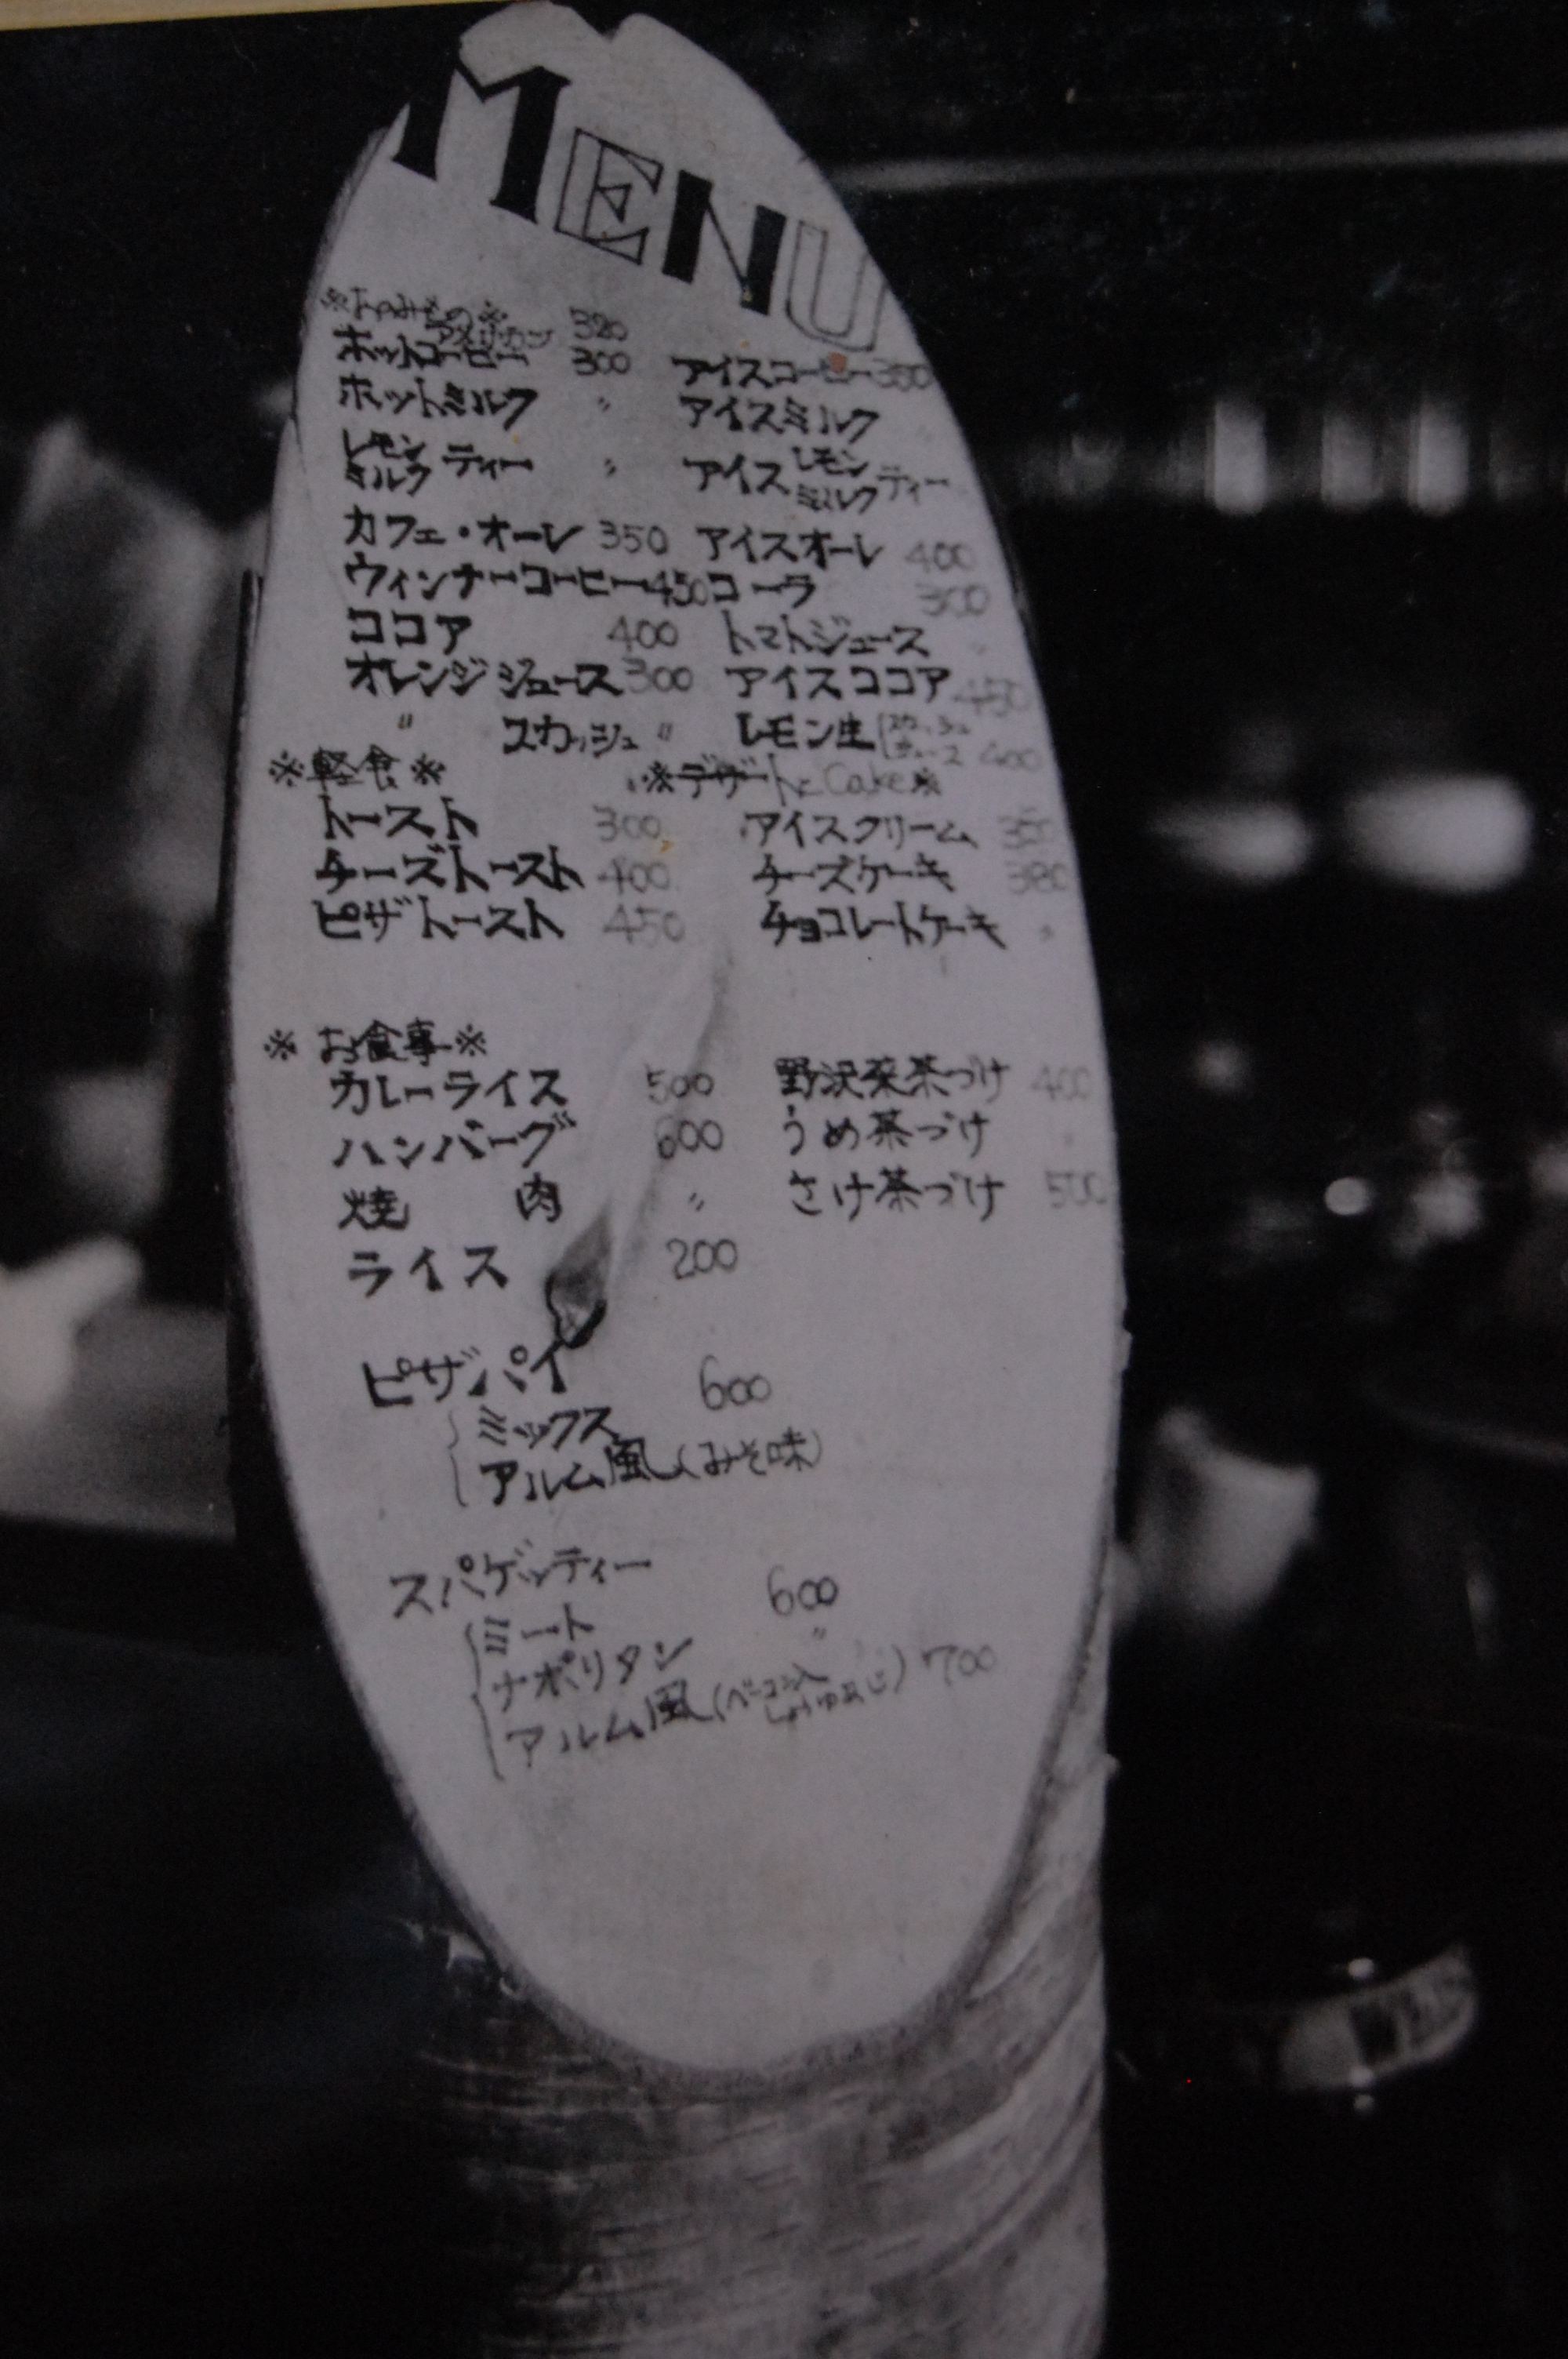 MENU
※おのみもの※
320
ホットコーヒー 300 アイスコーヒー 350
ホットミルク 〃 アイスミルク 〃
レモン
ミルク ティー 〃 アイス レモン
ミルク ティー
カフェ・オーレ 350 アイスオーレ 400
ウィンナーコーヒー 450 コーラ 300
ココア 400 トマトジュース 〃
オレンジジュース 300 アイスココア 450
〃 スカッシュ 〃 レモン生 スカッシュ
ジュース 400
※軽食※ ※デザートとCake※
トースト 300 アイスクリーム 350
チーズトースト 400 チーズケーキ 380
ピザトースト 450 チョコレートケーキ 〃
※お食事※
カレーライス 500 野沢菜茶づけ 400
ハンバーグ 600 うめ茶づけ 〃
焼肉 〃 さけ茶づけ 500
ライス 200
ピザパイ 600
ミックス
アルム風(みそ味)
スパゲッティー 600
ミート
ナポリタン 〃
アルム風(ベーコン入
しょうゆあじ) 700